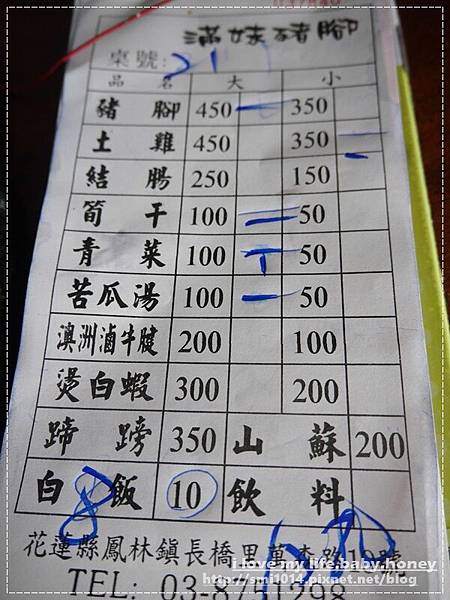 滿妹豬腳
桌號: 21
品 名 大 小
豬 腳 450 一 350
土 雞 450 350 二
結 腸 250 150
筍 干 100 二 50
青 菜 100 T 50
苦瓜湯 100 一 50
澳洲滷牛腱 200 100
燙白蝦 300 200
蹄 膀 350 山 蘇 200
白 飯 10 飲 料
8
花蓮縣鳳林鎮長橋里萬森路19號
i love my life.baby.honey
http://smi1014.pixnet.net/blog